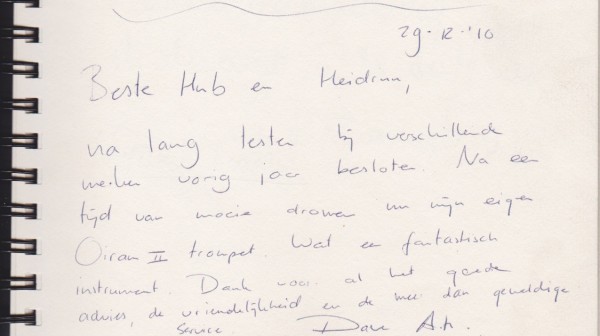 29-12-'10
Beste Hub en Heidrun,
na lang testen bij verschillende
merken vorig jaar besloten. Na een
tijd van mooie dromen nu mijn eigen
Oiran II trompet. Wat een fantastisch
instrument. Dank voor al het goede
advies, de vriendelijkheid en de meer dan geweldige
service.